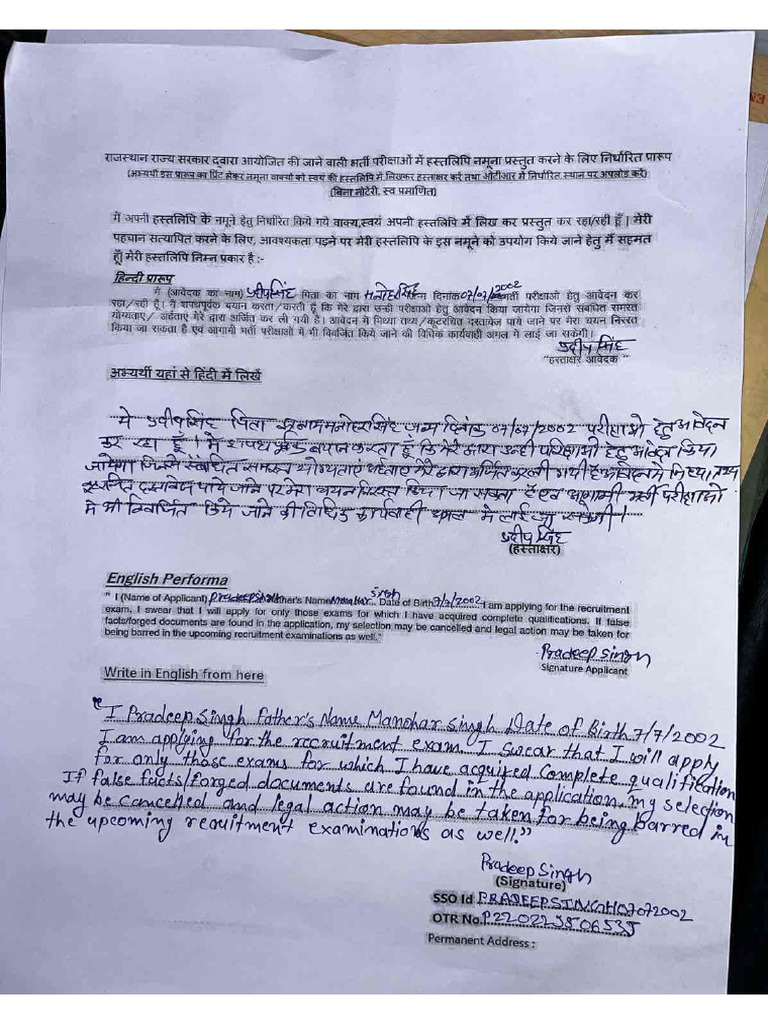 राजस्थान राज्य सरकार द्वारा आयोजित की जाने वाली भर्ती परीक्षाओं में हस्तलिपि नमूना प्रस्तुत करने के लिए निर्धारित प्रारूप
(अभ्यर्थी इस प्रारूप का प्रिंट लेकर नमूना वाक्यों को स्वयं की हस्तलिपि में लिखकर हस्ताक्षर करें तथा ओटीआर में निर्धारित स्थान पर अपलोड करें)
(बिना नोटेरी, स्व प्रमाणित)
मैं अपनी हस्तलिपि के नमूने हेतु निर्धारित किये गये वाक्य,स्वयं अपनी हस्तलिपि में लिख कर प्रस्तुत कर रहा/रही हूँ। मेरी
पहचान सत्यापित करने के लिए, आवश्यकता पड़ने पर मेरी हस्तलिपि के इस नमूने को उपयोग किये जाने हेतु मैं सहमत
हूँ। मेरी हस्तलिपि निम्न प्रकार है :-
हिन्दी प्रारूप
" मैं (आवेदक का नाम) प्रदीपसिंह पिता का नाम मनोहरसिंह जन्म दिनांक 07/07/2002 भर्ती परीक्षाओं हेतु आवेदन कर
रहा/रही हूँ। मैं शपथपूर्वक बयान करता/करती हूँ कि मेरे द्वारा उन्ही परीक्षाओं हेतु आवेदन किया जायेगा जिनसे संबंधित समस्त
योग्यताएं/ अर्हताएं मेरे द्वारा अर्जित कर ली गयी है। आवेदन में मिथ्या तथ्य/कूटरचित दस्तावेज पाये जाने पर मेरा चयन निरस्त
किया जा सकता है एवं आगामी भर्ती परीक्षाओं में भी विवर्जित किये जाने की विधिक कार्यवाही अमल में लाई जा सकेगी।
प्रदीप सिंह
"हस्ताक्षर आवेदक "
अभ्यर्थी यहां से हिंदी में लिखें
मे प्रदीपसिंह पिता का नाम मनोहरसिंह जन्म दिनांक 07/07/2002 परीक्षाओ हेतु आवेदन
कर रहा हूँ। मे शपथ पूर्वक बयान करता हूँ कि मेरे द्वारा उन्ही परिक्षाओ हेतु आवेदन किया
जायेगा जिनसे संबंधित समस्त योग्यताएं अर्हताएं मेरे द्वारा अर्जित कर ली गयी है आवेदन मे मिथ्या तथ्य
दस्तावेज पाये जाने पर मेरा चयन निरस्त किया जा सकता है एवं आगामी भर्ती परीक्षाओ
मे भी विवर्जित किये जाने की विधिक कार्यवाही अमल मे लाई जा सकेगी।
प्रदीप सिंह
(हस्ताक्षर)
English Performa
" I (Name of Applicant) Pradeep Singh Father's Name Manohar Singh Date of Birth 7/7/2002 I am applying for the recruitment
exam. I swear that I will apply for only those exams for which I have acquired complete qualifications. If false
facts/forged documents are found in the application, my selection may be cancelled and legal action may be taken for
being barred in the upcoming recruitment examinations as well."
Pradeep Singh
Signature Applicant
Write in English from here
"I Pradeep Singh Father's Name Manohar Singh Date of Birth 7/7/2002
I am applying for the recruitment exam. I swear that I will apply
for only those exams for which I have acquired Complete qualification
If false facts/forged documents are found in the application, my selection
may be cancelled and legal action may be taken for being barred in
the upcoming recruitment examinations as well."
Pradeep Singh
(Signature)
SSO Id PRADEEPSINGH07072002
OTR No. P220223506535
Permanent Address :